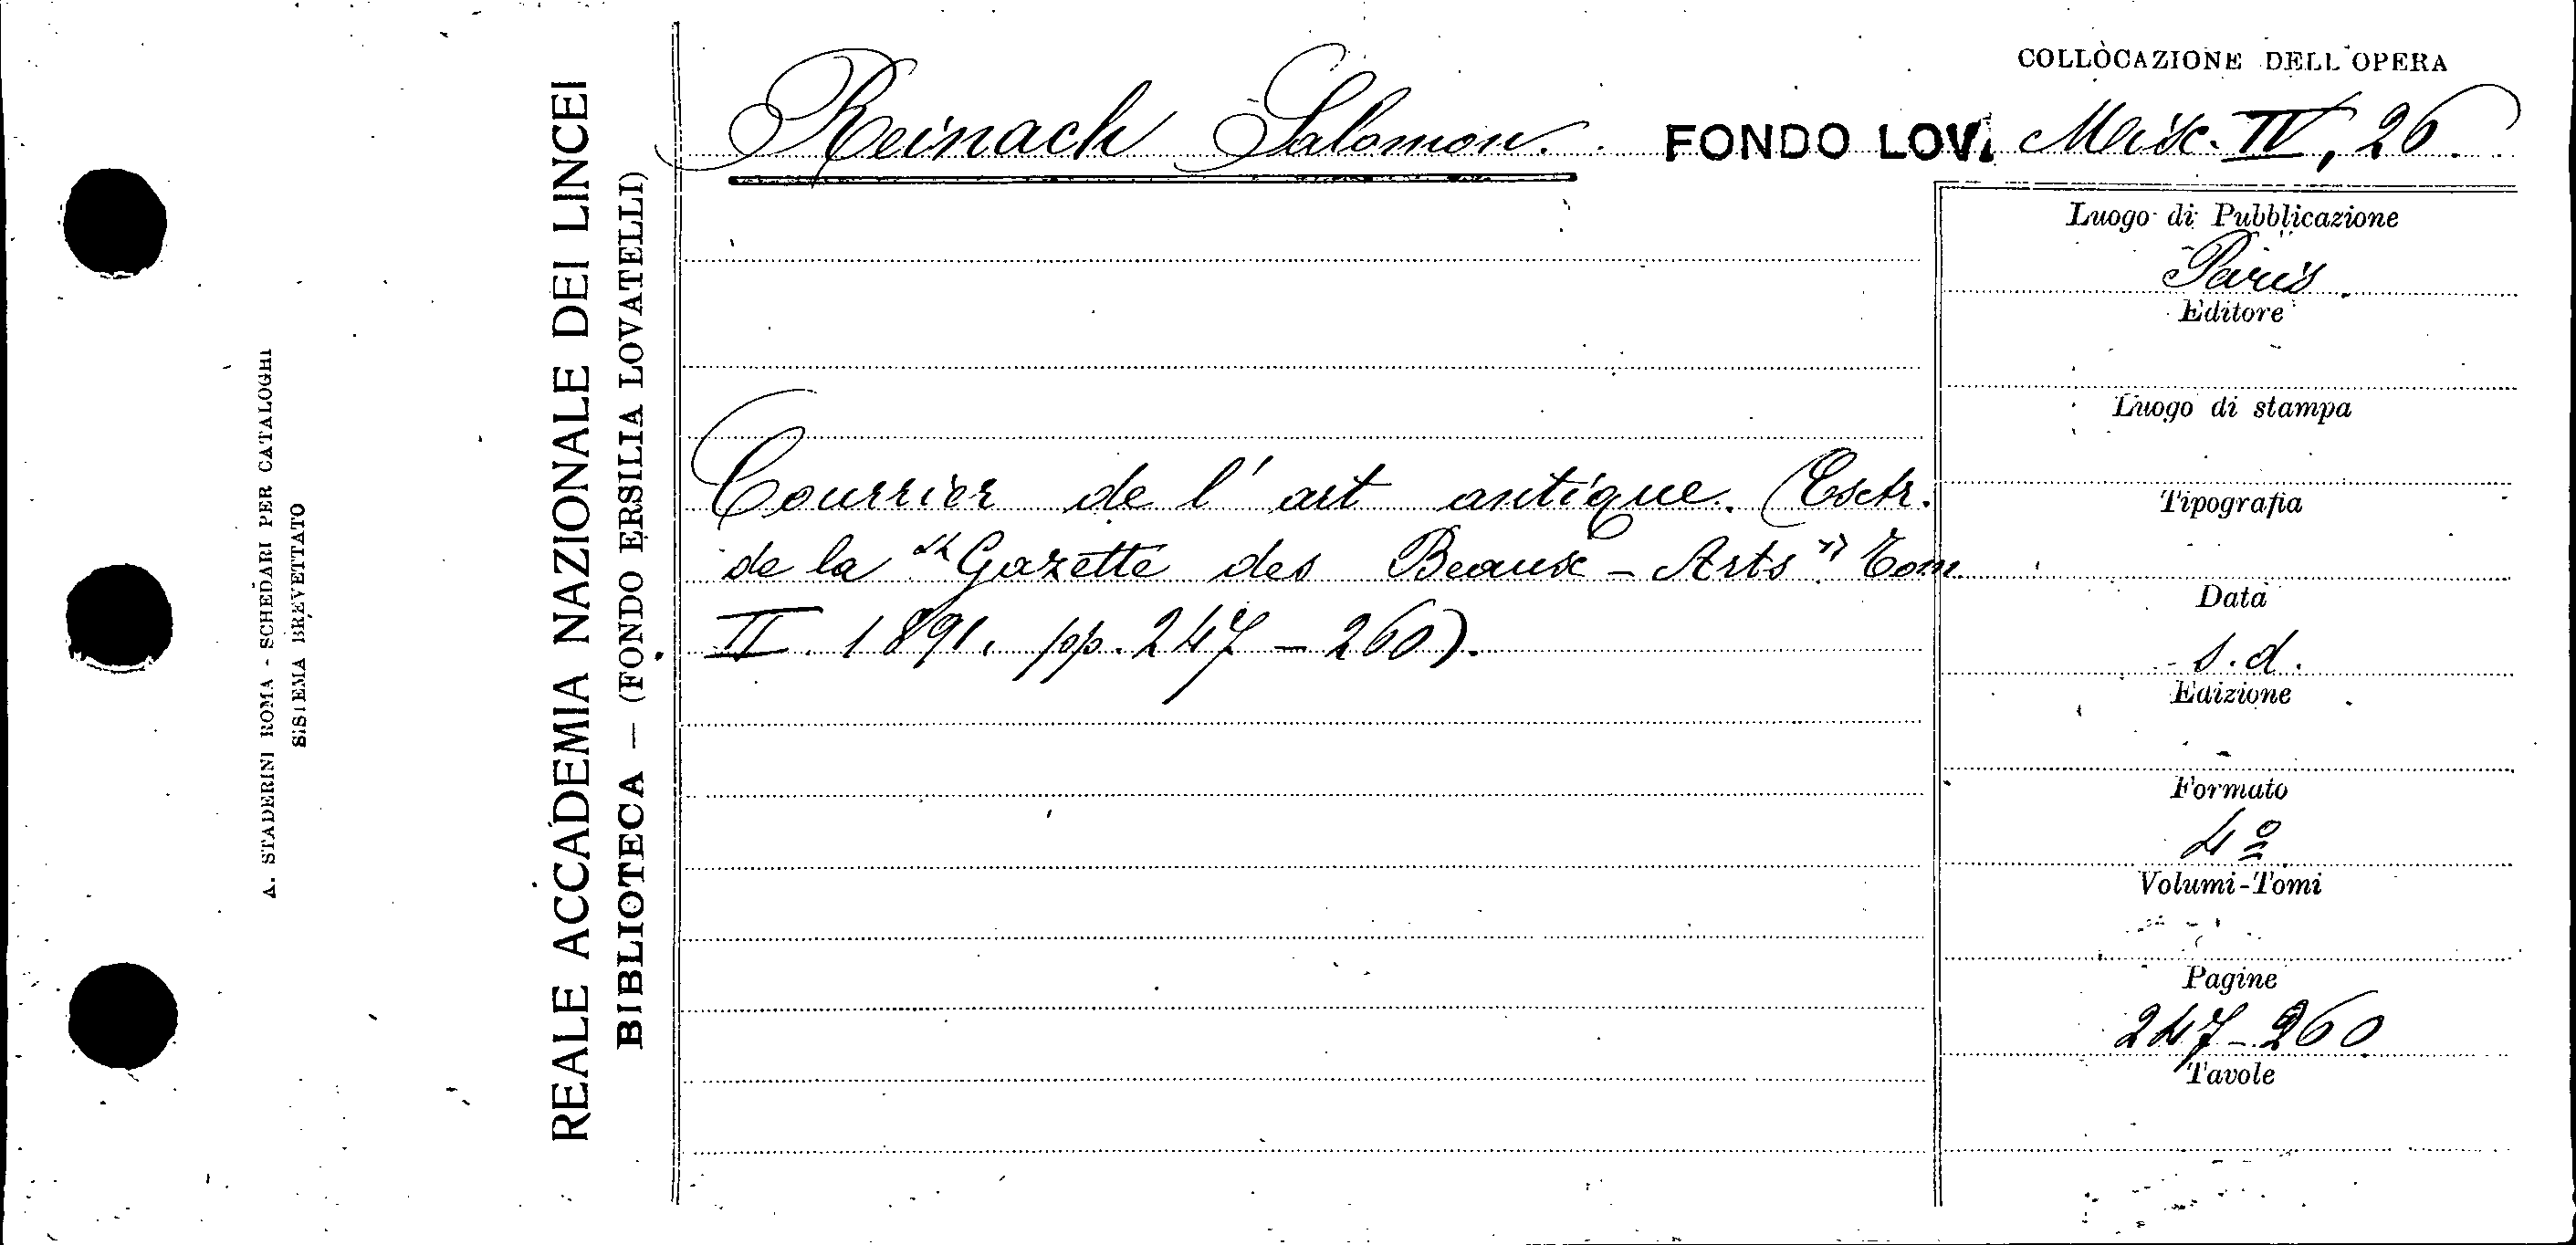 A. STADERINI ROMA - SCHEDARI PER CATALOGHI
SISTEMA BREVETTATO
REALE ACCADEMIA NAZIONALE DEI LINCEI
BIBLIOTECA — (FONDO ERSILIA LOVATELLI)
COLLOCAZIONE DELL'OPERA
Reinach Salomon. FONDO LOV. Misc. IV, 26.
Luogo di Pubblicazione
Paris.
Editore
Luogo di stampa
Courrier de l'art antique. (Estr.
Tipografia
de la "Gazette des Beaux-Arts" Tom.
Data
II. 1891. pp. 247-260).
s.d.
Edizione
Formato
4º
Volumi-Tomi
Pagine
247-260
Tavole